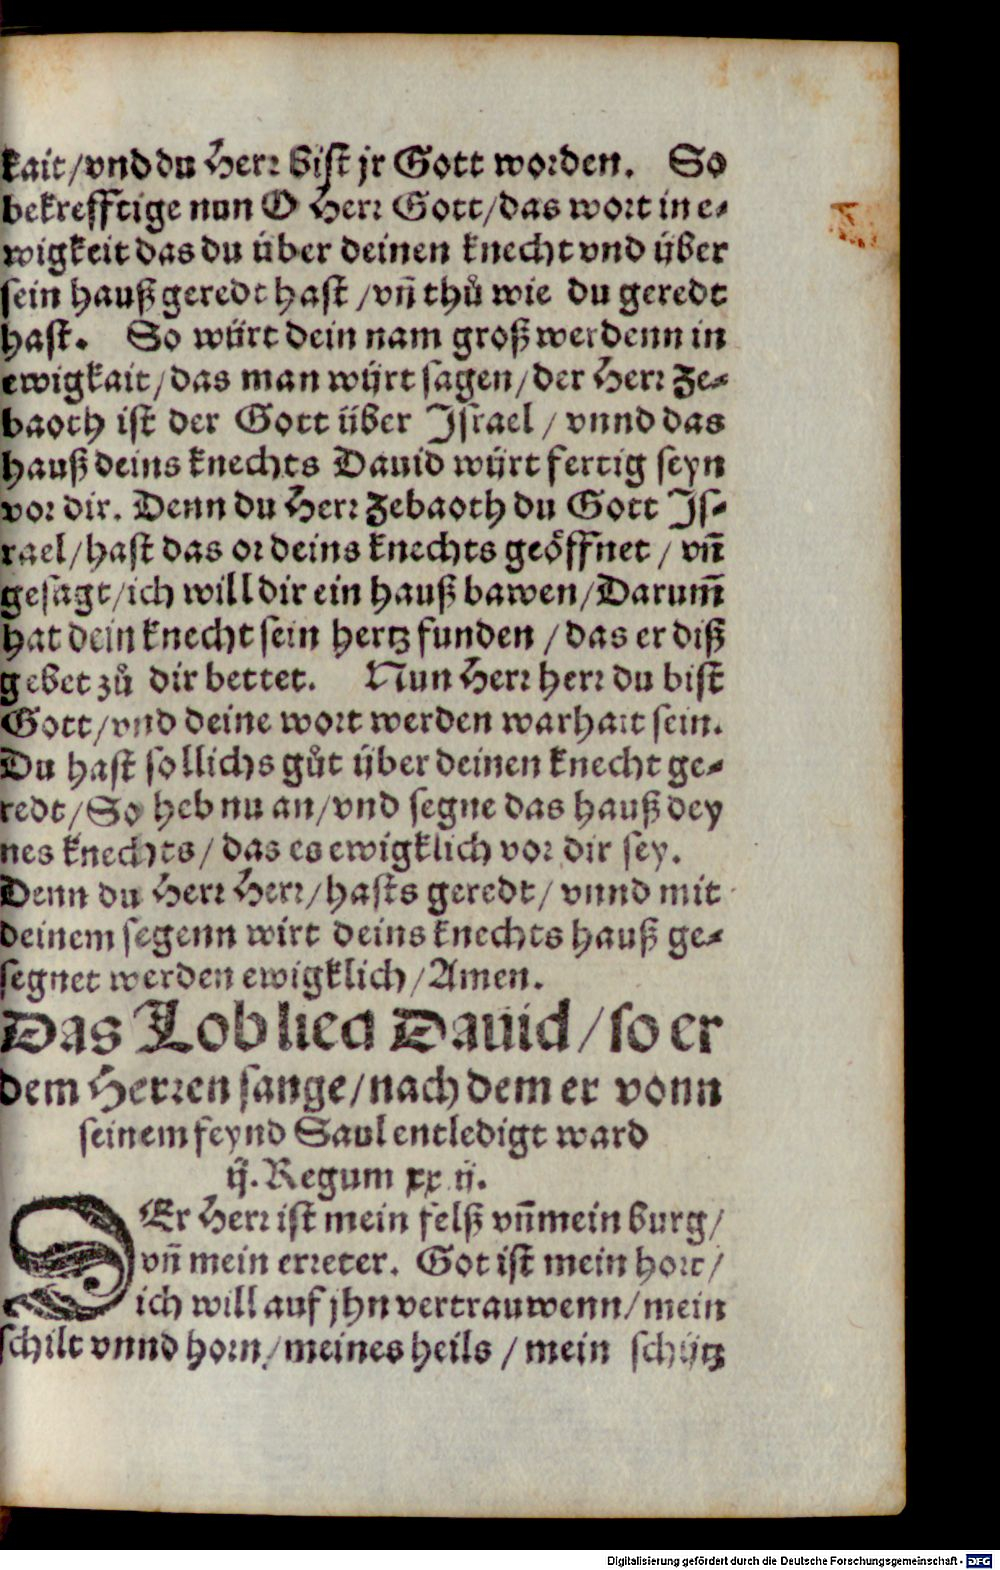 kait/vnd du Herr bist jr Gott worden. So
bekrefftige nun O Herr Gott/das wort in e⸗
wigkeit das du über deinen knecht vnd über
sein hauß geredt hast /vñ thů wie du geredt
hast. So würt dein nam groß werdenn in
ewigkait/das man würt sagen/der Herr Ze⸗
baoth ist der Gott über Israel / vnnd das
hauß deins knechts Dauid würt fertig seyn
vor dir. Denn du Herr Zebaoth du Gott Is⸗
rael/hast das or deins knechts geöffnet / vñ
gesagt/ich will dir ein hauß bawen/Darum̃
hat dein knecht sein hertz funden /das er diß
gebet zů dir bettet. Nun Herr herr du bist
Gott/vnd deine wort werden warhait sein.
Du hast sollichs gůt über deinen knecht ge⸗
redt/So heb nu an/vnd segne das hauß dey
nes knechts/ das es ewigklich vor dir sey.
Denn du Herr Herr/hasts geredt/ vnnd mit
deinem segenn wirt deins knechts hauß ge⸗
segnet werden ewigklich/Amen.
Das Loblied Dauid/so er
dem Herren sange/nach dem er vonn
seinem feynd Saul entledigt ward
ij. Regum xx ij.
DEr Herr ist mein felß vñ mein burg/
vñ mein erreter. Got ist mein hort/
ich will auf jhn vertrauwenn/mein
schilt vnnd horn/meines heils / mein schütz
Digitalisierung gefördert durch die Deutsche Forschungsgemeinschaft - DFG